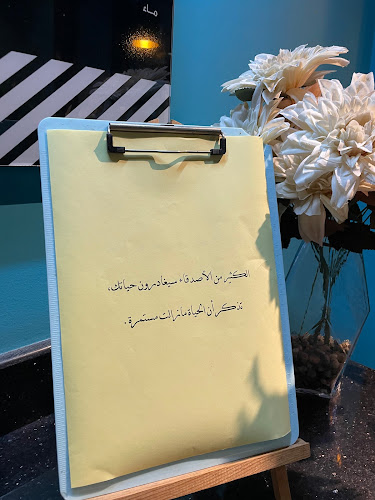 ماء
الكثير من الأصدقاء سيغادرون حياتك،
تذكر أن الحياة مازالت مستمرة.